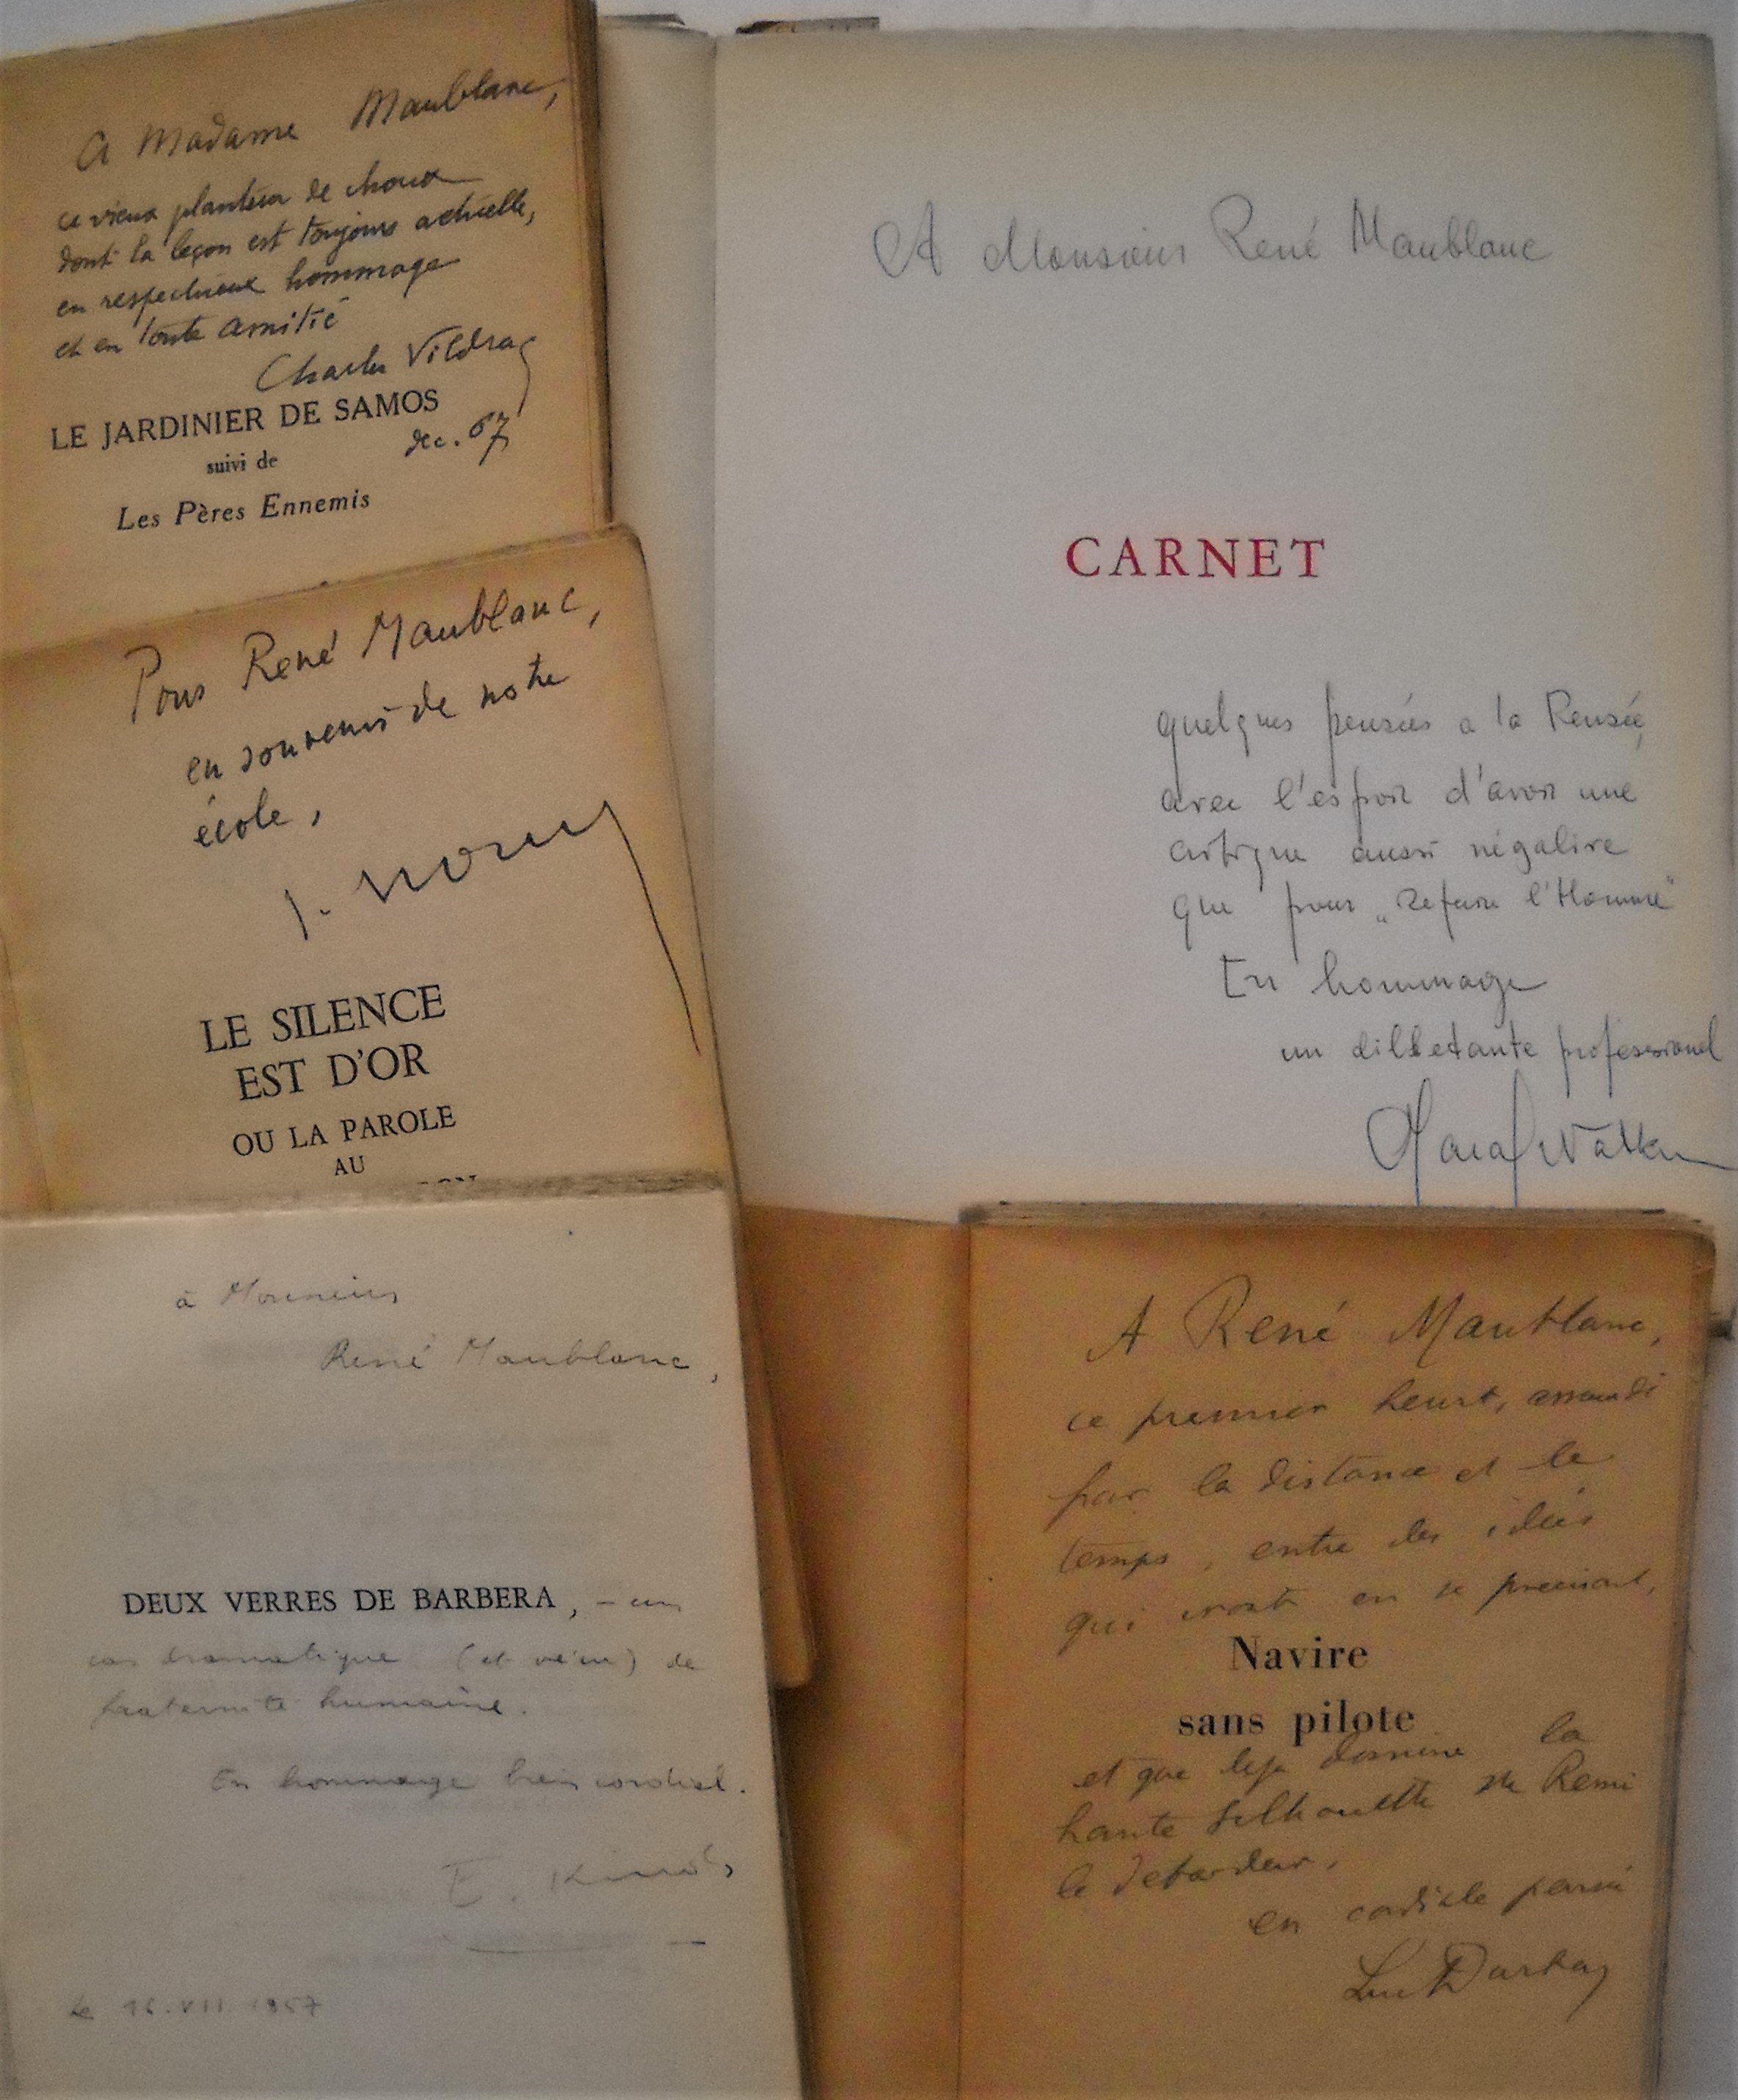 A Madame Maublanc,
ce vieux planteur de choux
dont la leçon est toujours actuelle,
en respectueux hommage
et en toute amitié
Charles Vildrac
LE JARDINIER DE SAMOS
dec. 67
suivi de
Les Pères Ennemis
Pour René Maublanc,
en souvenir de notre
école,
J.
LE SILENCE
EST D'OR
OU LA PAROLE
AU
à Monsieur
René Maublanc,
DEUX VERRES DE BARBERA, – un
cas dramatique (et vécu) de
fraternité humaine.
En hommage bien cordial.
E.
Le 16.VII.1957
A Monsieur René Maublanc
CARNET
quelques pensées a la Pensée,
avec l'espoir d'avoir une
critique aussi négative
que pour „Refaire l'Homme"
En hommage
un dilletante professionel
A René Maublanc,
ce premier heurt, amorti
par la distance et le
temps, entre des idées
qui iront en se précisant,
Navire
sans pilote
et que deja domine la
haute silhouette de Remi
le debardeur,
en cordiale pensée
Luc Durtain